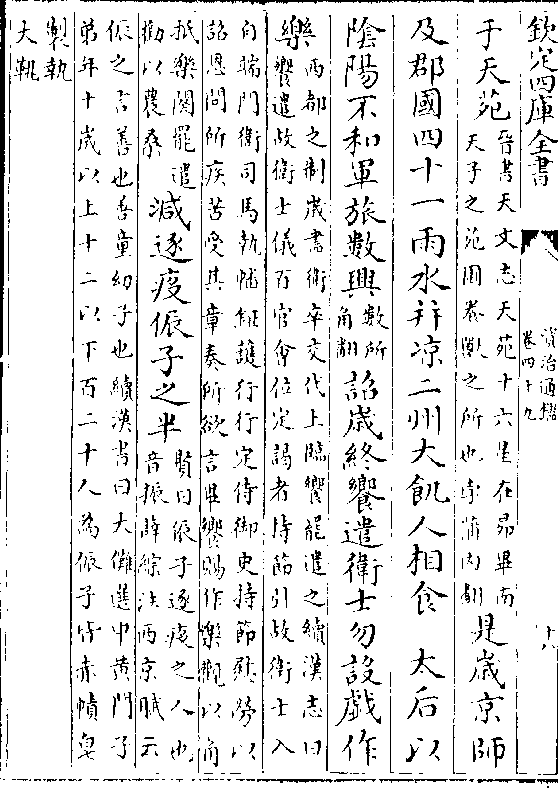 欽定四庫全書
資治通鑑
卷四十九
十八
于天苑
晉書天文志天苑十六星在昴畢南
天子之苑囿養獸之所也孛蒲内翻
是歲京師
及郡國四十一雨水幷凉二州大飢人相食 太后以
陰陽不和軍旅數興
數所
角翻
詔歲終饗遣衛士勿設戲作
樂
西都之制歲盡衛卒交代上臨饗罷遣之續漢志曰
饗遣故衛士儀百官會位定謁者持節引故衛士入
自端門衛司馬執幡鉦護行行定侍御史持節慰勞以
詔恩問所疾苦受其章奏所欲言畢饗賜作樂觀以角
抵樂闋罷遣
勸以農桑
減逐疫侲子之半
賢曰侲子逐疫之人也
音振薛綜注西京賦云
侲之言善也善童幼子也續漢書曰大儺選中黄門子
弟年十歲以上十二以下百二十人為侲子皆赤幘皁
製執
大鞉